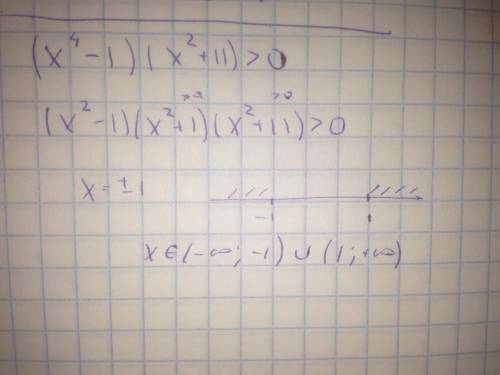 (x⁴ - 1)(x² + 11) > 0
>0 >0
(x² - 1)(x² + 1)(x² + 11) > 0
x = ± 1
-1 1
x ∈ (-∞; -1) ∪ (1; +∞)